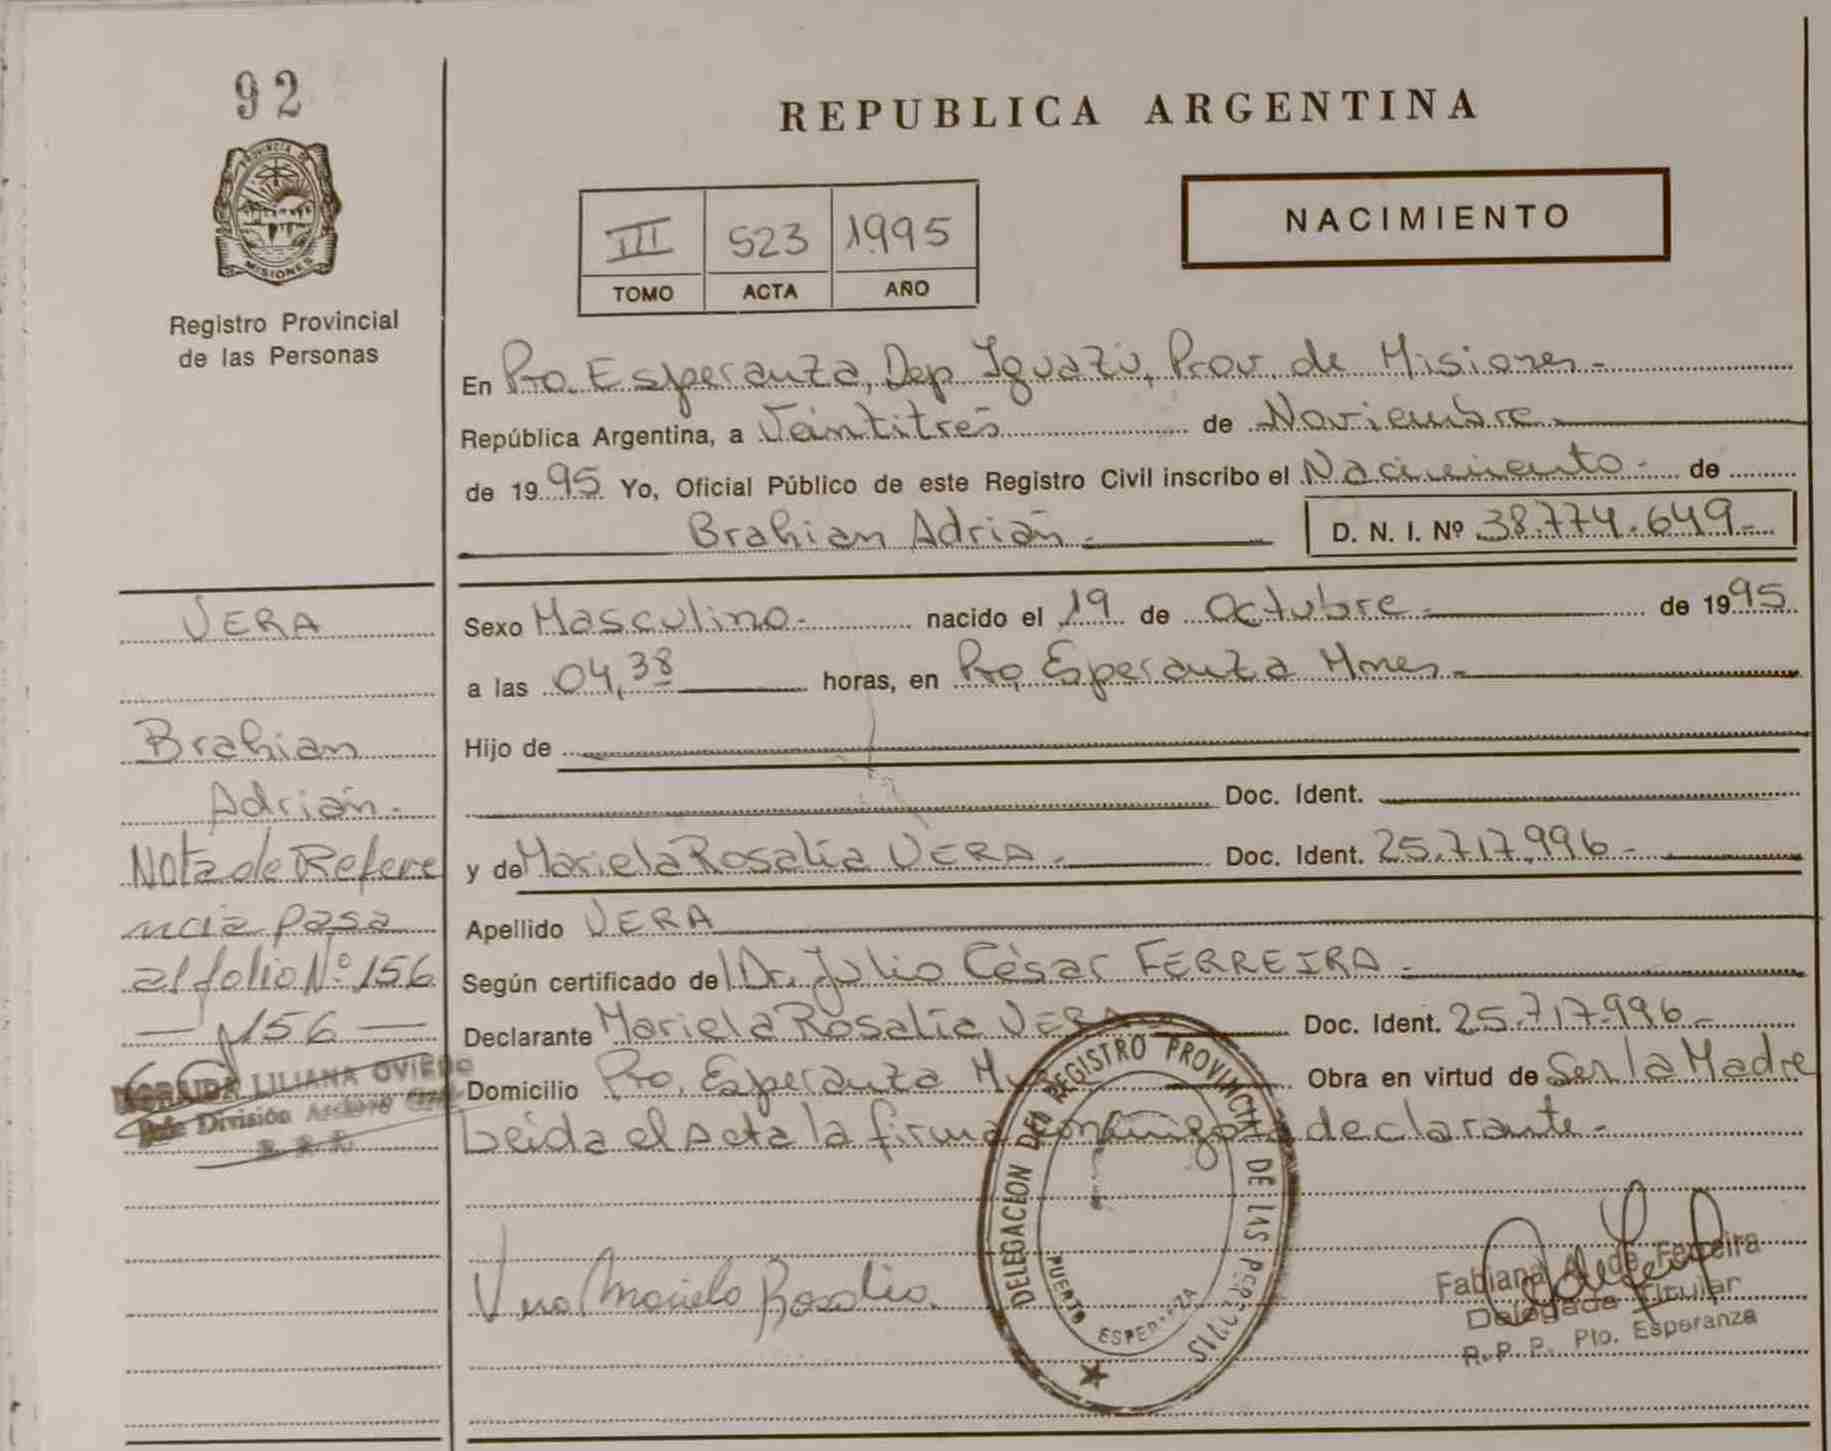 92
PROVINCIA DE
MISIONES
Registro Provincial
de las Personas
REPUBLICA ARGENTINA
III 523 1995
TOMO ACTA AÑO
NACIMIENTO
En Pto. Esperanza, Dep Iguazú, Prov. de Misiones.-
República Argentina, a Veintitrés de Noviembre.-
de 1995 Yo, Oficial Público de este Registro Civil inscribo el Nacimiento.- de
Brahian Adrián.- D. N. I. Nº 38.774.649.-
VERA
Brahian
Adrián.-
Nota de Refere
ncia pasa
al folio Nº 156
— 156 —
LILIANA OVIEDO
División
Sexo Masculino.- nacido el 19 de Octubre.- de 1995
a las 04,38 horas, en Pto. Esperanza Mnes.-
Hijo de
Doc. Ident.
y de Mariela Rosalía VERA.- Doc. Ident. 25.717.996.-
Apellido VERA
Según certificado del Dr. Julio César FERREIRA.-
Declarante Mariela Rosalía VERA Doc. Ident. 25.717.996.-
Domicilio Pto. Esperanza Obra en virtud de Ser la Madre
Leida el acta la firma conmigo la declarante.-
DELEGACION DEL REGISTRO PROVINCIAL DE LAS
PUERTO ESPERANZA
Vera Mariela Rosalia.
Fabiana A. de Ferreira
Delegada Titular
R. P. P. Pto. Esperanza